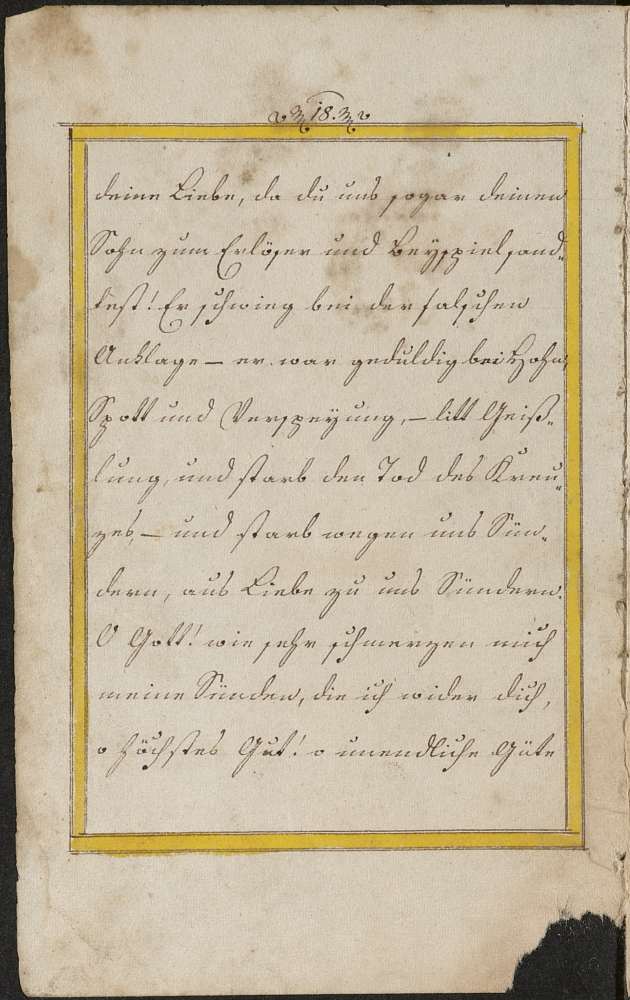 18.
deine Liebe, da du uns sogar deinen
Sohn zum Erlöser und Beyspiel sand„
test! Er schwieg bei der falschen
Anklage — er war geduldig bei Hohn,
Spott und Verspeyung, — litt Geiß„
lung, und starb den Tod des Kreu„
zes, — und starb wegen uns Sün„
dern, aus Liebe zu uns Sündern.
O Gott! wie sehr schmerzen mich
meine Sünden, die ich wider dich,
o höchstes Gut! o unendliche Güte